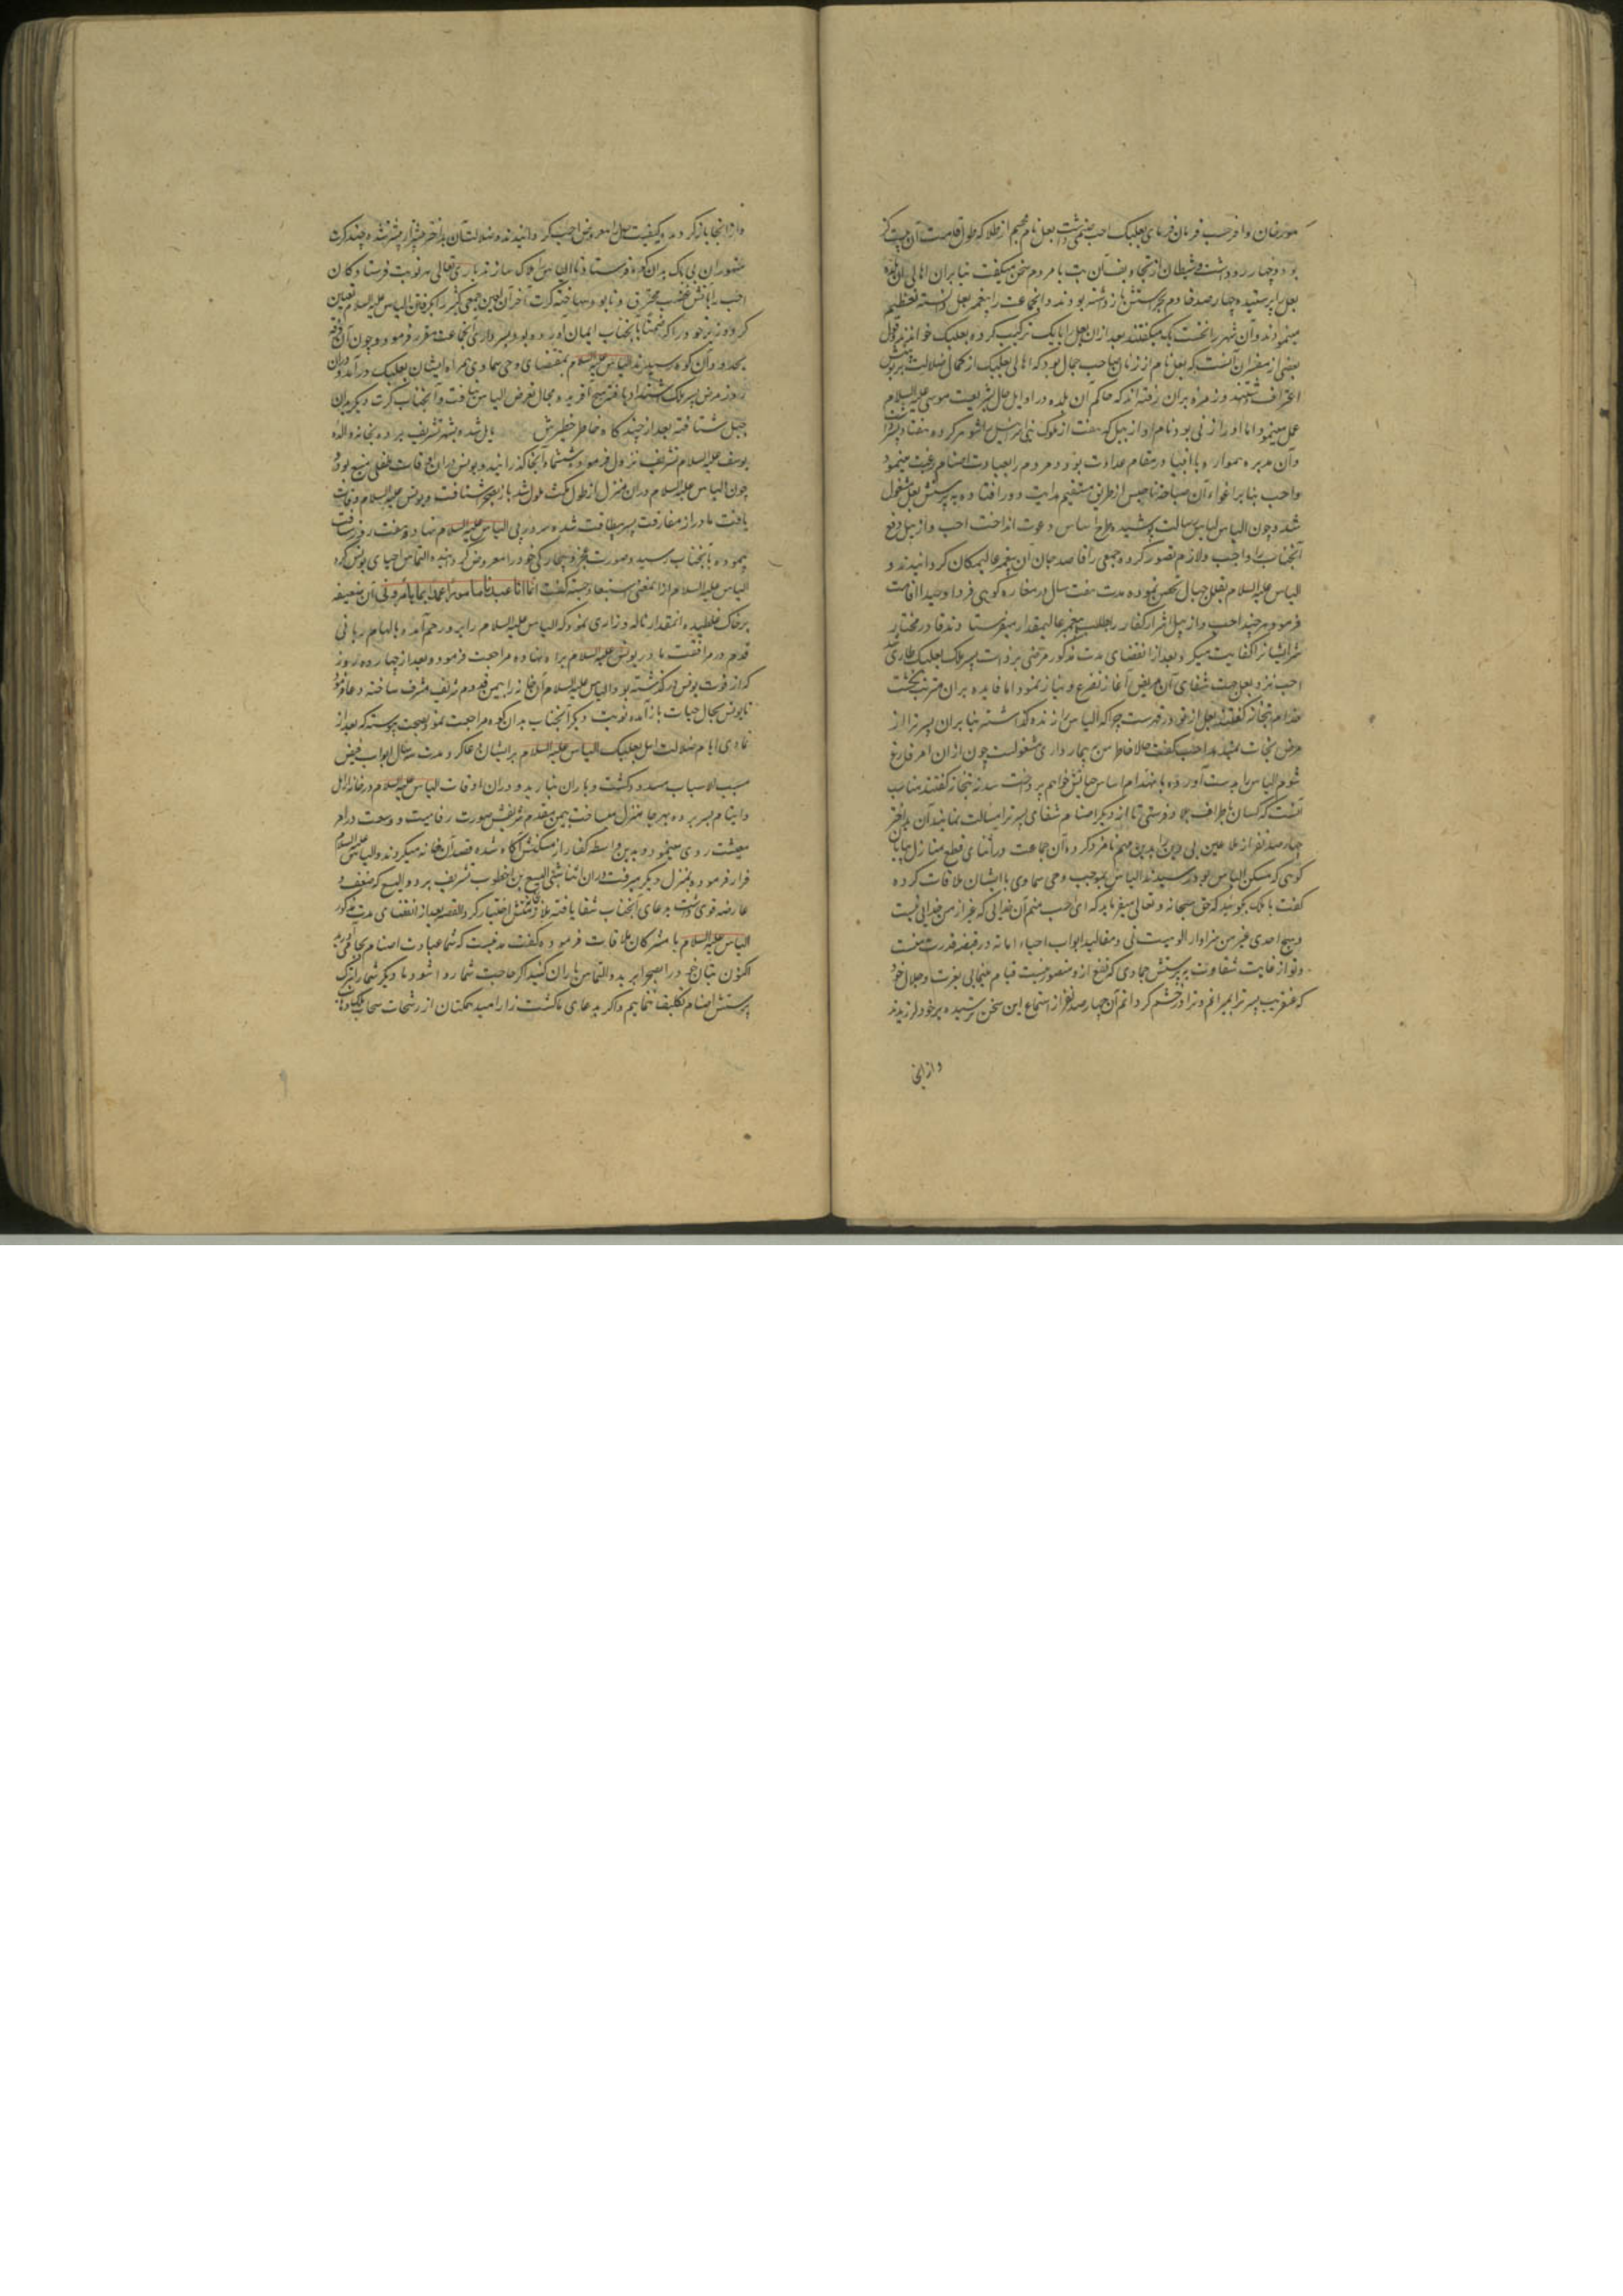 مورخان وافر حسب فرمان فرمای بعلبک احب صنمی داشت بعل نام مجسم از طلا که طول قامت آن بیست گز
بود و چهار رو داشت و شیطان از تجاویف آن بت با مردم سخن میگفت بنابران اهالی آن بلده
بعل را پرستیده چهار صد خادم بجهة پرستش باز داشته بودند و آنجماعت را پیغمبر بعل دانسته تعظیم
مینمودند و آن شهر را نخست بک میگفتند بعد ازان بعل را با بک ترکیب کرده بعلبک خواندند و قول
بعضی از مفسران آنست که بعل نام از زنان صاحب جمال بود که اهالی بعلبک از کمال ضلالت
اعتراف داشتند و زمره بران رفته اند که حاکم آن بلده در اوایل حال بشریعت موسی علیه السلام
عمل مینمود اما او را زنی بود نام او ازبیل که هفت از ملوک بنی اسرائیل را شوهر کرده هفتاد پسر
و آن مدبره همواره با انبیا در مقام عداوت بود و مردم را بعبادت اصنام رغبت مینمود
واحب بنابر اغواء آن از طریق مستقیم هدایت دور افتاده به پرستش بعل مشغول
شد و چون الیاس لباس رسالت پوشیده طرح اساس دعوت انداخت احب و ازبیل دفع
آنجناب را واجب و لازم تصور کرده جمعی را قاصد جان آن پیغمبر عالیمکان گردانیدند و
الیاس علیه السلام بقلل جبال تحصن نموده مدت هفت سال در مغاره کوهی فردا وحیدا اقامت
فرمود و هرچند احب و ازبیل اشرار کفار را بطلب پیغمبر عالیمقدار میفرستادند قادر مختار
شر ایشانرا کفایت میکرد و بعد از انقضای مدت مذکور مرضی بر ذات پسر ملک بعلبک طاری شد
احب نزد بعل جهت شفای آن مریض آغاز تضرع و نیاز نمود اما فایده بران مترتب نگشت
خدام بتخانه گفتند بعل از تو در قهرست چرا که الیاس را زنده گذاشته بنابران پسر ترا از
مرض نجات نمیدهد احب گفت حالا خاطر من به بیمارداری مشغولست چون ازان امر فارغ
شوم الیاس را بدست آورده بانهدام اساس حیاتش خواهم پرداخت سدنه بتخانه گفتند مناسب
آنست که کسان باطراف بلاد فرستی تا از دیگر اصنام شفای پسر ترا مسألت نمایند آن بد اختر
چهار صد نفر از ملاعین بی دین را بدین مهم نامزد کرد و آن جماعت در اثنای قطع منازل بپایان
کوهی که مسکن الیاس بود رسیدند الیاس بموجب وحی سماوی با ایشان ملاقات کرده
گفت با ملک بگوئید که حق سبحانه و تعالی میفرماید که ای احب منم آن خدائی که غیر از من خدائی نیست
و هیچ احدی غیر من سزاوار الوهیت نی و مقالید ابواب احیاء اماته در قبضه قدرت منست
و تو از غایت شقاوت به پرستش جمادی که نفع ازو متصور نیست قیام مینمایی بعزت و جلال خود
که عنقریب پسر ترا بمیرانم و ترا در خشم گردانم آن چهار صد نفر از استماع این سخن ترسیده بر خود لرزیدند
و از انجا
و از انجا باز گردیده و کیفیت حال را معروض احب گردانیدند و ضلالت آن بداختر بیشتر از پیشتر شده چند کرت
متهوران بی باک بدان کوه فرستاد تا الیاس را هلاک سازند باری تعالی هر نوبت فرستادگان
احب را بآتش غضب محترق و نابود ساخته کرت آخر آن لعین جمعی کثیر را بگرفتن الیاس علیه السلام تعیین
کرد و وزیر خود را که ضمنا بآنجناب ایمان آورده بود بسرداری آنجماعت مقرر فرمود و چون آن فرقه
بحدود آن کوه رسیدند الیاس علیه السلام بمقتضای وحی سماوی همراه ایشان ببعلبک در آمد و دران
روز مرض پسر ملک اشتداد یافته هیچ آفریده مجال تعرض الیاس نیافت و آنجناب کرت دیگر بدان
جبل شتافته بعد از چندگاه خاطر خطیرش مایل شده بشهر تشریف برده بخانه والده
یونس علیه السلام تشریف نزول فرمود و ششماه آنجا گذرانید و یونس دران اوقات طفلی رضیع بود و
چون الیاس علیه السلام دران منزل از طول مکث ملول شد باز بصحرا شتافت و یونس علیه السلام وفات
یافت مادر از مفارقت پسر بیطاقت شده سر در پی الیاس علیه السلام نهاد و هفت روز مسافت
پیموده بآنجناب رسید و صورت عجز و بیچارگی خود را معروض گردانیده التماس احیای یونس کرد
الیاس علیه السلام ازانمعنی استبعاد جسته گفت انما انا عبد مأمور اعمل بما یأمرونی آن ضعیفه
بر خاک غلطیده آنمقدار ناله و زاری نمود که الیاس علیه السلام را برو رحم آمد و بالهام ربانی
قدم در مرافقت مادر یونس علیه السلام براه نهاده مراجعت فرمود و بعد از چهارده روز
که از فوت یونس در گذشته بود الیاس علیه السلام آن خانه را بیمن قدوم شریف مشرف ساخته دعا فرمود
تا یونس بحال حیات باز آمده نوبت دیگر آنجناب بدان کوه مراجعت نمود بصحت پیوسته که بعد از
تمادی ایام ضلالت اهل بعلبک الیاس علیه السلام بر ایشان دعا کرد و مدت سه سال ابواب فیض
مسبب الاسباب مسدود گشت و باران نبارید و دران اوقات الیاس علیه السلام در خانه ارامل
و ایتام بسر برده بهر جا منزل میساخت بیمن مقدم شریفش صورت رفاهیت و وسعت در امر
معیشت روی مینمود و بدین واسطه کفار از مسکنش آگاه شده قصد آن خانه میکردند و الیاس علیه السلام
فرار فرموده بمنزل دیگر میرفت دران اثنا شبی الیسع بن اخطوب تشریف برد و الیسع که ضعف و
عارضه قوی داشت بدعای آنجناب شفا یافته ملازمتش اختیار کرد و القصه بعد از انقضای مدت مذکور
الیاس علیه السلام با مشرکان ملاقات فرموده گفت مدتیست که شما عبادت اصنام بجا می آرید
اکنون بتان خود را بصحرا برید و التماس باران کنید اگر حاجت شما روا شود ما دیگر شما را بترک
پرستش اصنام تکلیف ننماییم و اگر بدعای ما کشت زار امید همگنان از رشحات سحاب